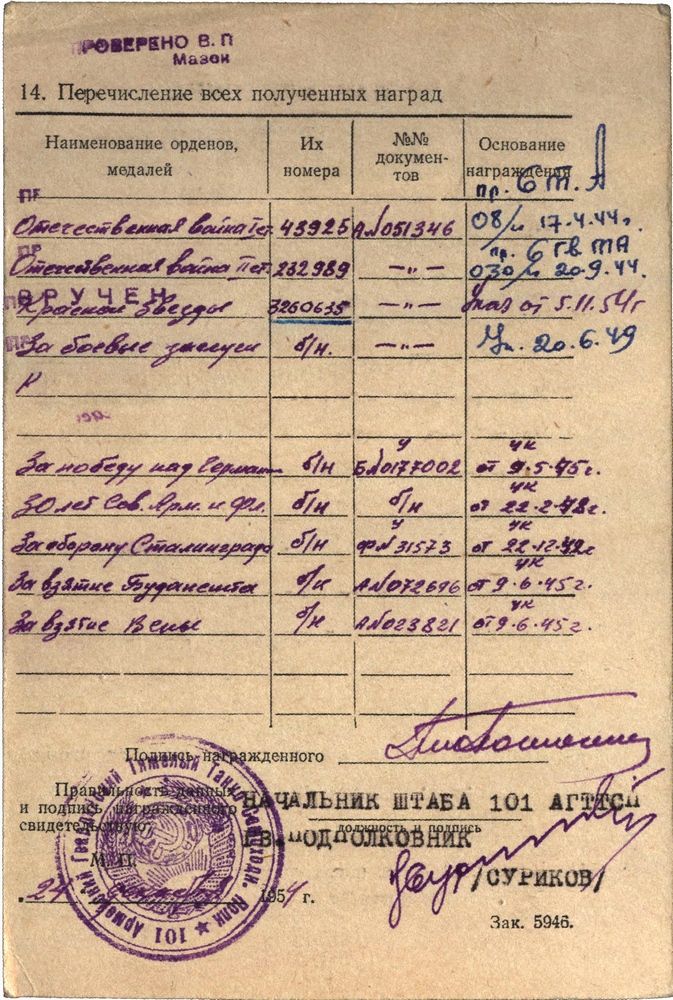 ПРОВЕРЕНО В. П
Мазон
14. Перечисление всех полученных наград
Наименование орденов, медалей | Их номера | №№ документов | Основание награждения
пр. 6 Т.А
Отечественная война I ст. 43925 А №051346 08/н 17.4.44г.
пр. 6 ГВ ТА
Отечественная война II ст. 232989 —"— 030/н 20.9.44.
ВРУЧЕН
Красной Звезды 3260635 —"— Указ от 5.11.54г
За боевые заслуги б/н. —"— Ук. 20.6.49
У УК
За победу над Герман б/н Б №0177002 от 9.5.45г.
УК
30 лет Сов. Арм. и Фл. б/н б/н от 22.2.48г.
У УК
За оборону Сталинграда б/н Ф №31573 от 22.12.42г
УК
За взятие Будапешта б/н А №072696 от 9.6.45г.
УК
За взятие Вены б/н А №023821 от 9.6.45г.
Подпись награжденного
Правильность данных
и подпись награжденного
свидетельствую:
НАЧАЛЬНИК ШТАБА 101 АГТТСП
должность и подпись
ГВ. ПОДПОЛКОВНИК
М. П.
/СУРИКОВ/
24 декабря 1954 г.
101 Армейский Гвардейский Тяжелый Танко-Самоходн. Полк
Зак. 5946.